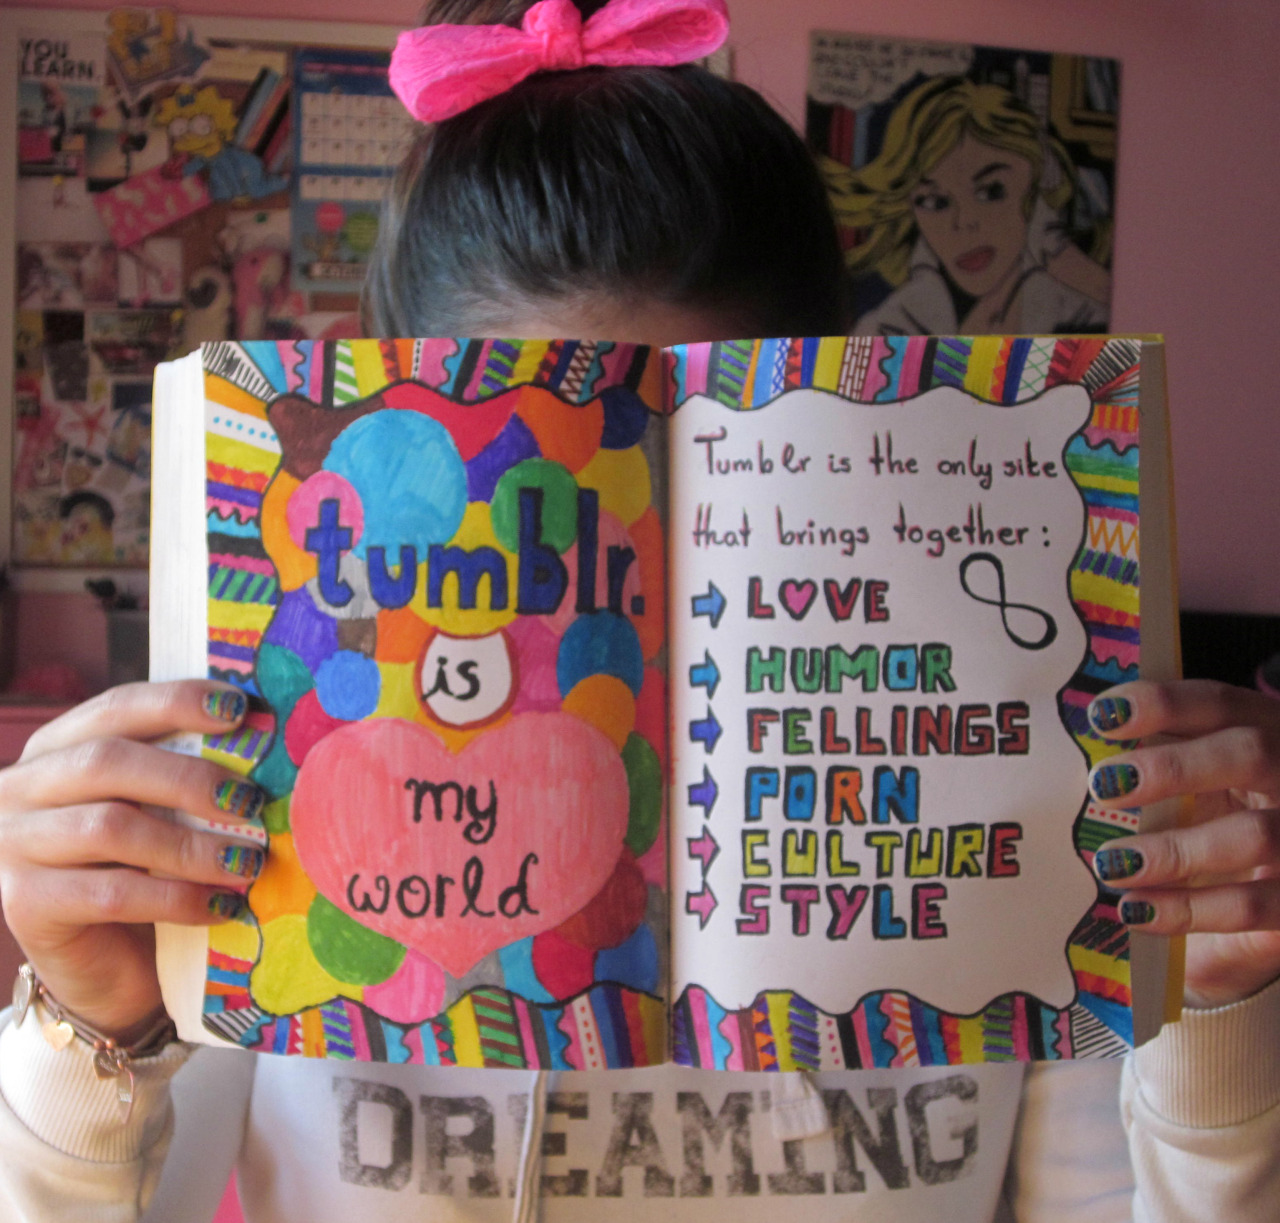 YOU
LEARN.
tumblr.
is
my
world
Tumblr is the only site
that brings together:
LOVE
HUMOR
FELLINGS
PORN
CULTURE
STYLE
DREAMING